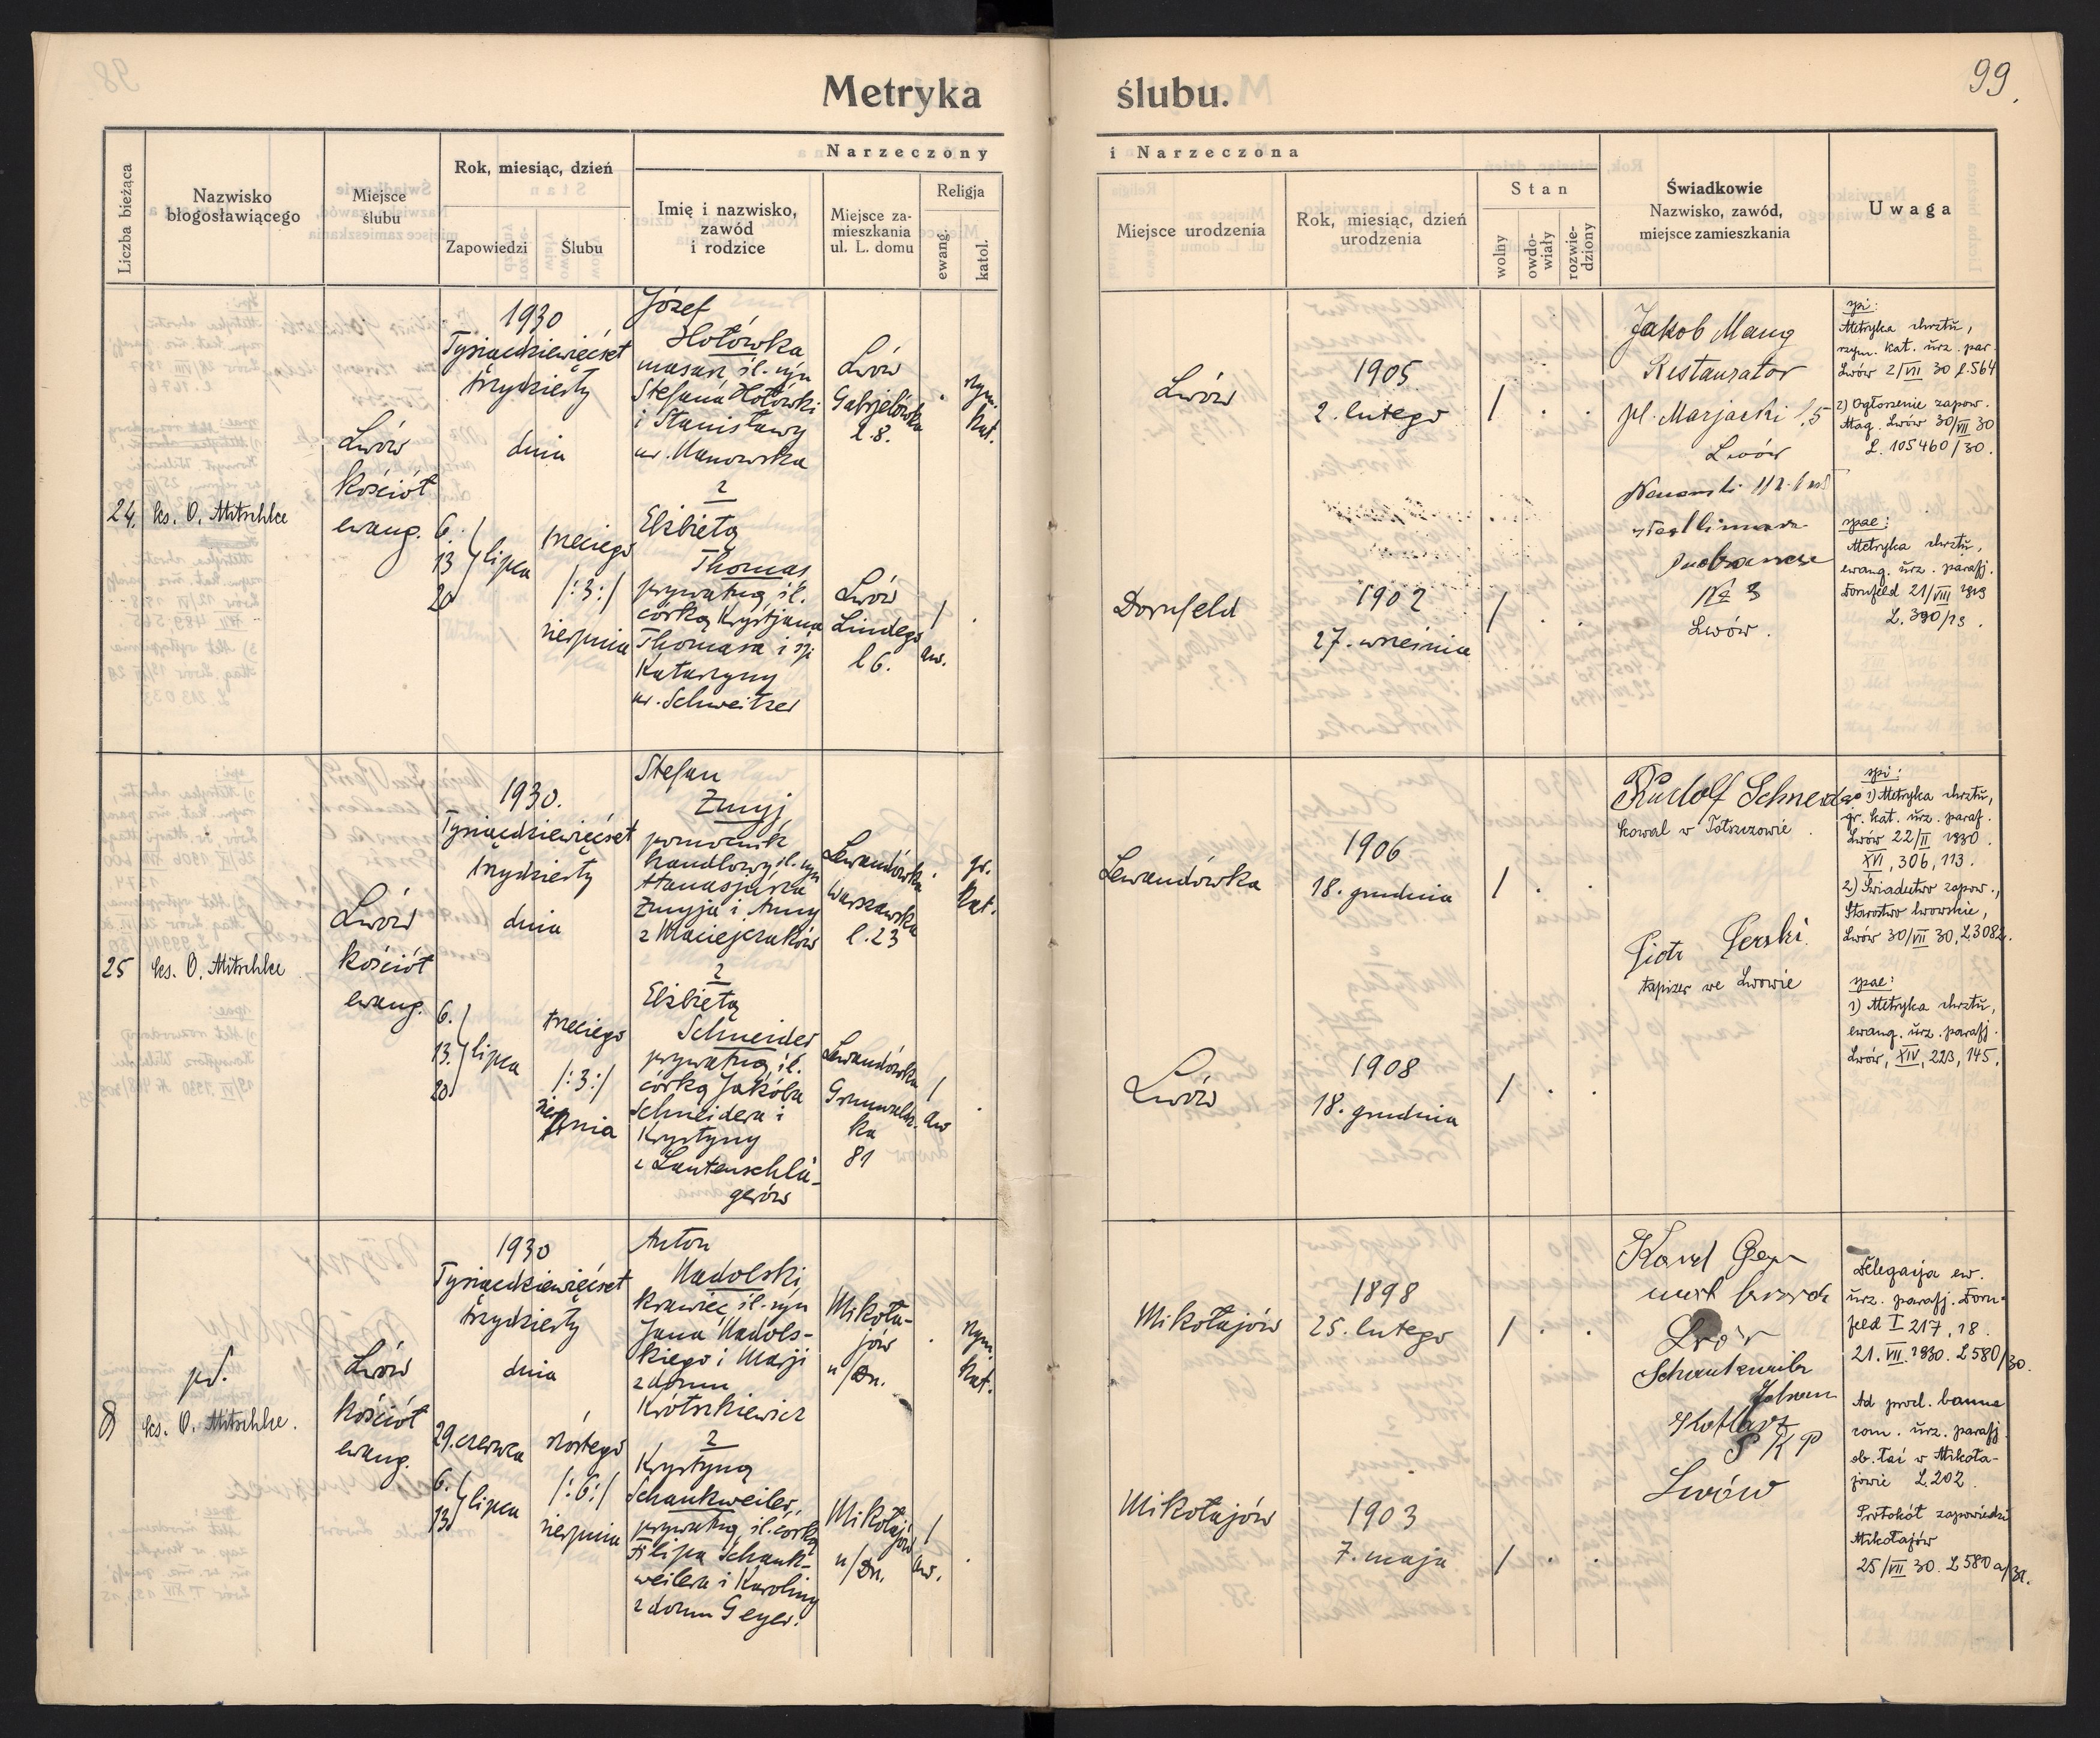 99.
Metryka ślubu.
Liczba bieżąca
Nazwisko
błogosławiącego
Miejsce
ślubu
Rok, miesiąc, dzień
Zapowiedzi
Ślubu
Narzeczony
Imię i nazwisko,
zawód
i rodzice
Miejsce za-
mieszkania
ul. L. domu
Religja
ewang.
katol.
i Narzeczona
Miejsce urodzenia
Rok, miesiąc, dzień
urodzenia
Stan
wolny
owdo-
wiały
rozwie-
dziony
Świadkowie
Nazwisko, zawód,
miejsce zamieszkania
Uwaga
24.
ks. O. Mitschke
Lwów
kościół
ewang.
1930
Tysiącdziewięćset
trzydziesty
dnia
6.
13
20
lipca
trzeciego
/:3:/
sierpnia
Józef
Hołówka
masarz śl. syn
Stefana Hołówki
i Stanisławy
ur. Nanowska
z
Elżbietą
Thomas
prywatną, śl.
córką Krystjana
Thomasa i
Katarzyny
ur. Schweitzer
Lwów
Gabrjelówka
l. 8.
Lwów
Lindego
l 6.
rzym.
kat.
/
aw.
Lwów
1905
2. lutego
/
Dornfeld
1902
27. września
/
Jakob Maug
Restaurator
pl. Marjacki l. 5
Lwów
№ 3
Lwów.
spi:
Metryka chrztu,
rzym. kat. urz. par.
Lwów 2/VII 30 l. 564
2) Ogłoszenie zapow.
Mag. Lwów 30/VII 30
L. 105460/30.
spae:
Metryka chrztu,
ewang. urz. parafj.
Dornfeld 21/VIII
L. 390/13.
25
ks. O. Mitschke
Lwów
kościół
ewang.
1930.
Tysiącdziewięćset
trzydziesty
dnia
6.
13.
20
lipca
trzeciego
/:3:/
sierpnia
Stefan
Zmyj,
pomocnik
handlowy, śl. syn
Atanazjusza
Zmyja i Anny
z Maciejczaków
z
Elżbietą
Schneider
prywatną, śl.
córką Jakóba
Schneidera i
Krystyny
z Lautenschlä-
gerów
Lewandówka
Warszawska
l. 23
Lewandówka
Grunwaldz-
ka
81
gr.
kat.
/
aw
Lewandówka
1906
18. grudnia
/
Lwów
1908
18. grudnia
/
Rudolf Schneider
kowal w Tołszczowie
Piotr Perski
tapicer we Lwowie
spi:
1) Metryka chrztu,
gr. kat. urz. paraf.
Lwów 22/II 1930.
XVI, 306, 113.
2) Świadectwo zapow.,
Starostwo lwowskie,
Lwów 30/VII 30, L. 3082.
spae:
1) Metryka chrztu,
ewang. urz. parafj.
Lwów, XIV, 223, 145.
pd.
ks. O. Mitschke.
Lwów
kościół
ewang.
1930
Tysiącdziewięćset
trzydziesty
dnia
29. czerwca
6.
13
lipca
szóstego
/:6:/
sierpnia
Anton
Nadolski,
krawiec, śl. syn
Jana Nadols-
kiego i Marji
z domu
Krótszkiewicz
z
Krystyną
Schankweiler,
prywatną, śl. córką
Filipa Schank-
weilera i Karoliny
z domu Geyer.
Mikoła-
jów
n/Dn.
Mikołajów
n/Dn.
rzym.
kat.
/
aw.
Mikołajów
1898
25. lutego
/
Mikołajów
1903
7. maja
/
Karol
Lwów
Schankweiler
Johann
Kotlarz
P K P
Lwów
Delegacja ew.
urz. parafj. Dorn-
feld I 217, 18.
21. VII. 1930. L 580/30.
Ad prod. banna
rom. urz. parafj.
ob. łać w Mikoła-
jowie L. 202.
Protokół zapowiedzi
Mikołajów
25/VII 30. L 580 a/30.